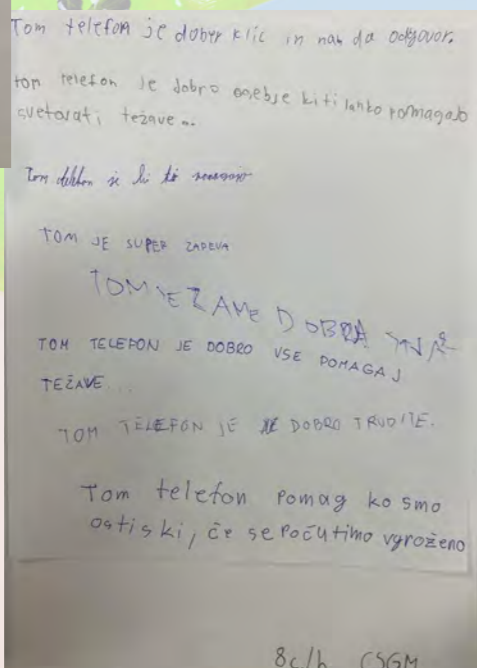 Tom telefon je dober klic in nam da odgovor.
tom telefon je dobro osebje ki ti lahko pomagajo
svetovati težave...
Tom telefon je ki ti
TOM JE SUPER ZADEVA
TOM JE ZAME DOBRA
TOM TELEFON JE DOBRO VSE POMAGAJ
TEŽAVE...
TOM TELEFON JE DOBRO TRUDITE.
Tom telefon pomag ko smo
ostiski, če se počutimo vgroženo
8c/h CSGM